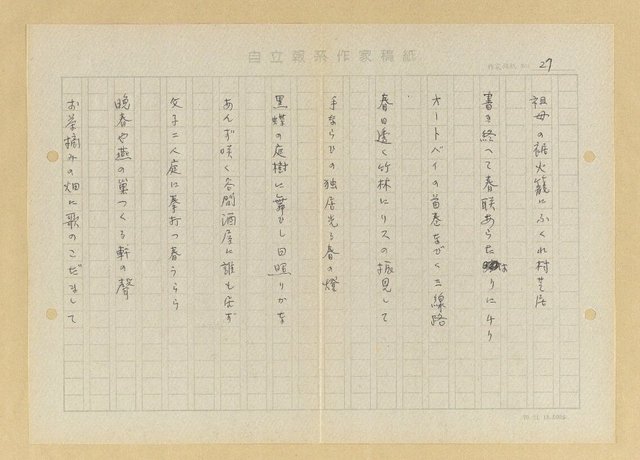 自立報系作家稿紙
27
祖母の裾火籠にふくれ村芝居
書き終へて春联あらたまりにけり
オートバイの首巻ながく三線路
春日透く竹林にリスの振見して
手ならひの独居光る春の燈
黒蝶の庭樹に舞ひし日照りかな
あんず咲く谷間酒屋に誰も居ず
父子二人庭に拳打つ春うらら
晩春や燕の巣つくる軒の聲
お茶摘みの畑に歌のこだまして